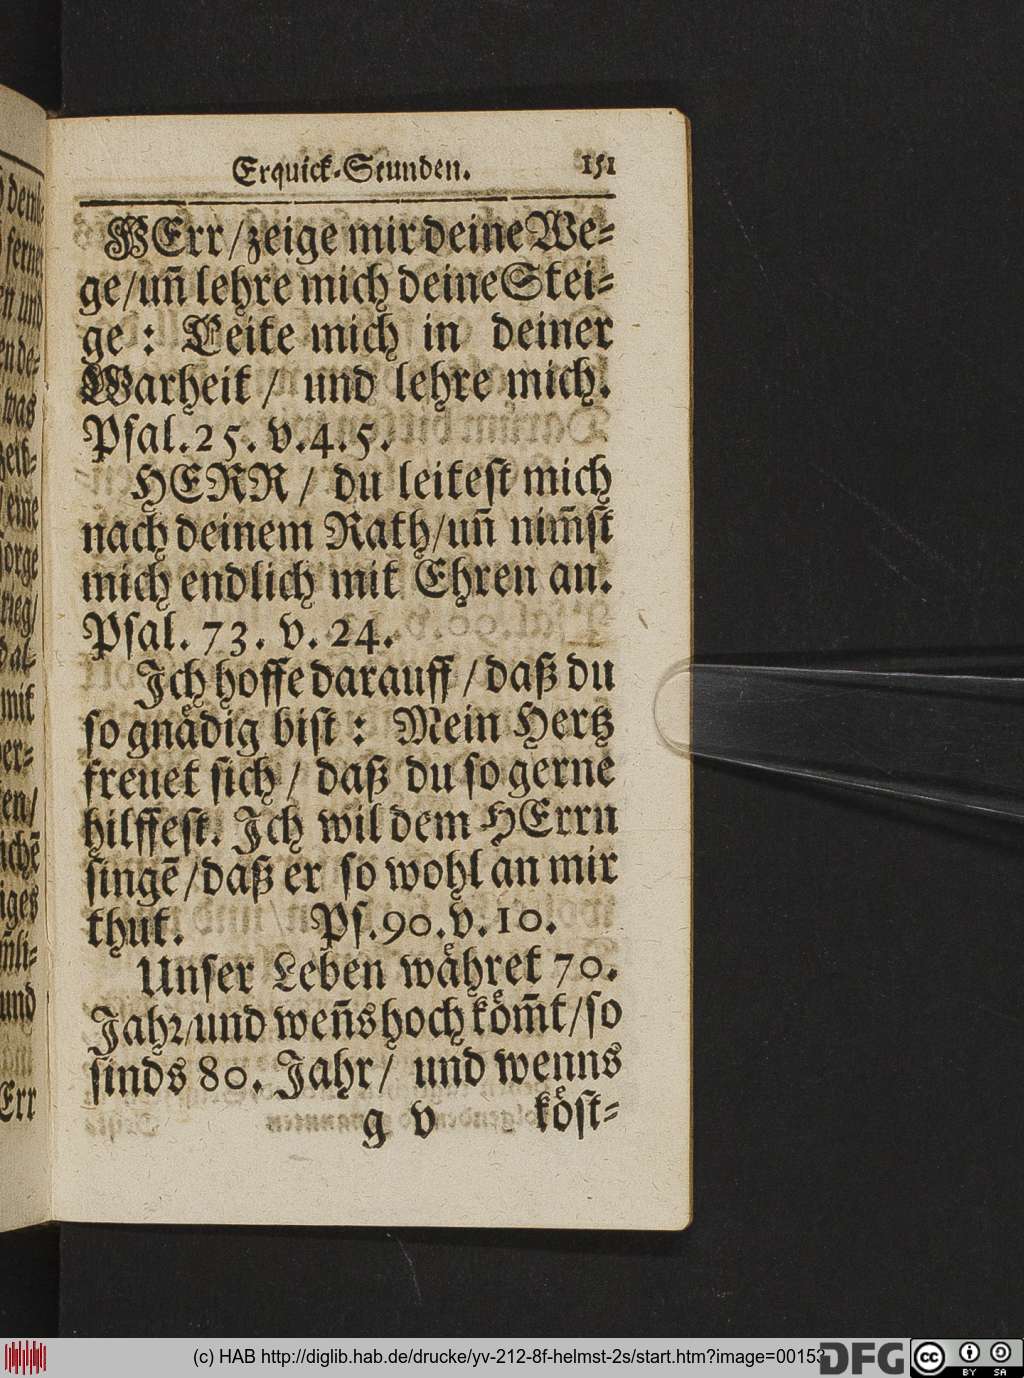 Erquick-Stunden. 151
HErr/zeige mir deine We-
ge/uñ lehre mich deine Stei-
ge : Leite mich in deiner
Warheit / und lehre mich.
Psal. 25. v. 4. 5.
HERR / du leitest mich
nach deinem Rath/uñ nim̃st
mich endlich mit Ehren an.
Psal. 73. v. 24.
Ich hoffe darauff / daß du
so gnädig bist : Mein Hertz
freuet sich / daß du so gerne
hilffest. Ich wil dem HErrn
singẽ/daß er so wohl an mir
thut. Ps. 90. v. 10.
Unser Leben währet 70.
Jahr/und weñs hoch köm̃t/so
sinds 80. Jahr/ und wenns
g v köst-
(c) HAB http://diglib.hab.de/drucke/yv-212-8f-helmst-2s/start.htm?image=00153
DFG
cc BY SA